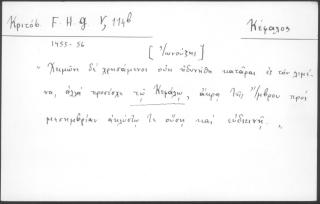 Κριτόβ. F.H.G V, 114b
Κέφαλος
1455-56
[Ἰωνούζης]
"Χειμῶνι δὲ χρησάμενοι οὐκ ἠδυνήθη κατᾶραι ἐς τὸν λιμέ-
να, ἀλλὰ προσέσχε τῷ Κεφάλῳ, ἄκρᾳ τῆς Ἴμβρου πρὸς
μεσημβρίαν ἀκλύστῳ τε οὔσῃ καὶ εὐδιεινῇ."